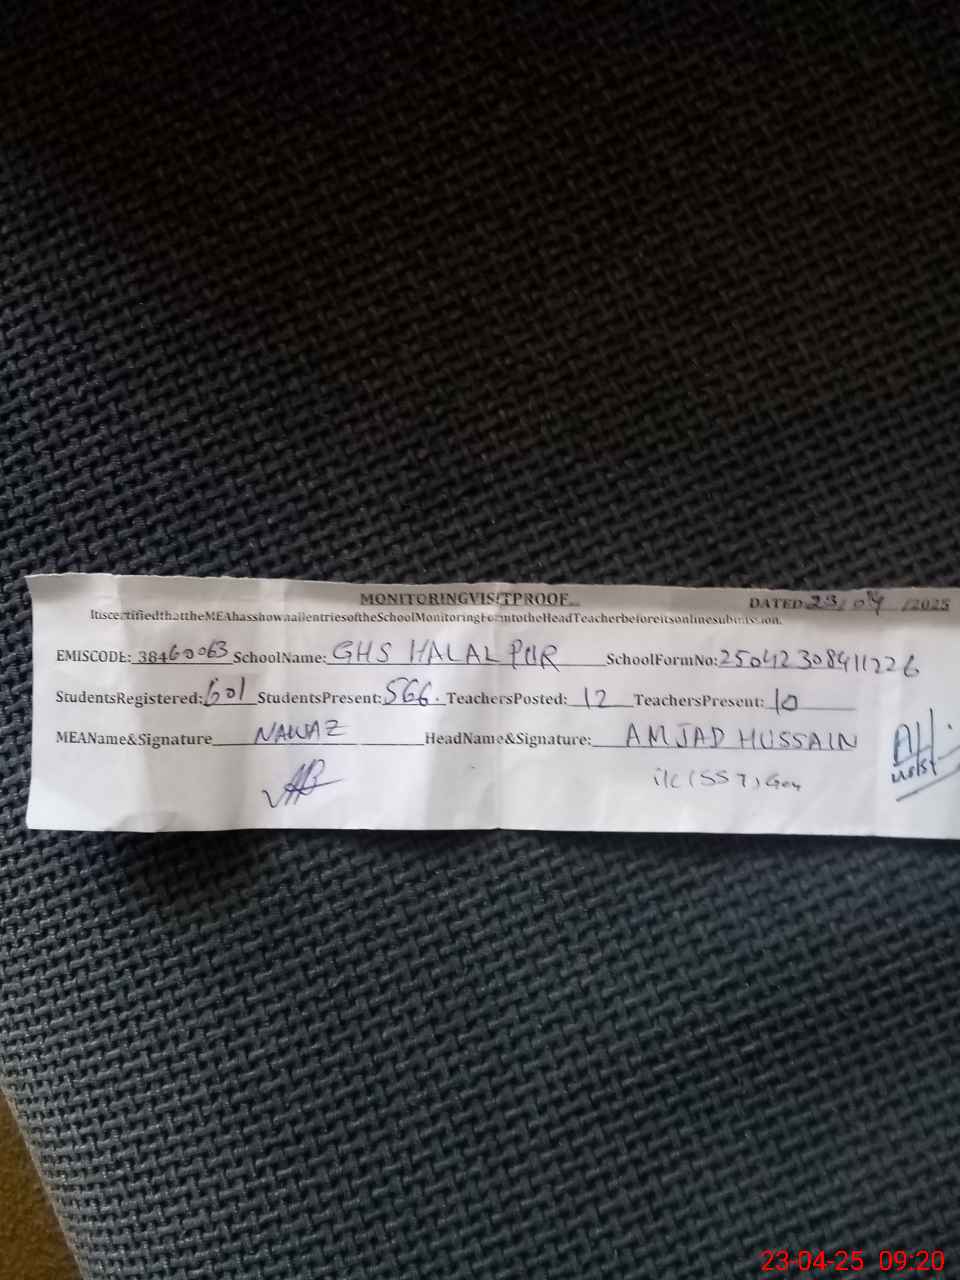 MONITORINGVISITPROOF
DATED:23/04/2025
ItiscertifiedthattheMEAhasshownallentriesoftheSchoolMonitoringFormtotheHeadTeacherbeforeitsonlinesubmission.
EMISCODE: 38460063 SchoolName: GHS HALAL PUR SchoolFormNo: 25042308411226
StudentsRegistered: 601 StudentsPresent: 566. TeachersPosted: 12 TeachersPresent: 10
MEAName&Signature NAWAZ HeadName&Signature: AMJAD HUSSAIN
i/c (SST) Gen
23-04-25 09:20